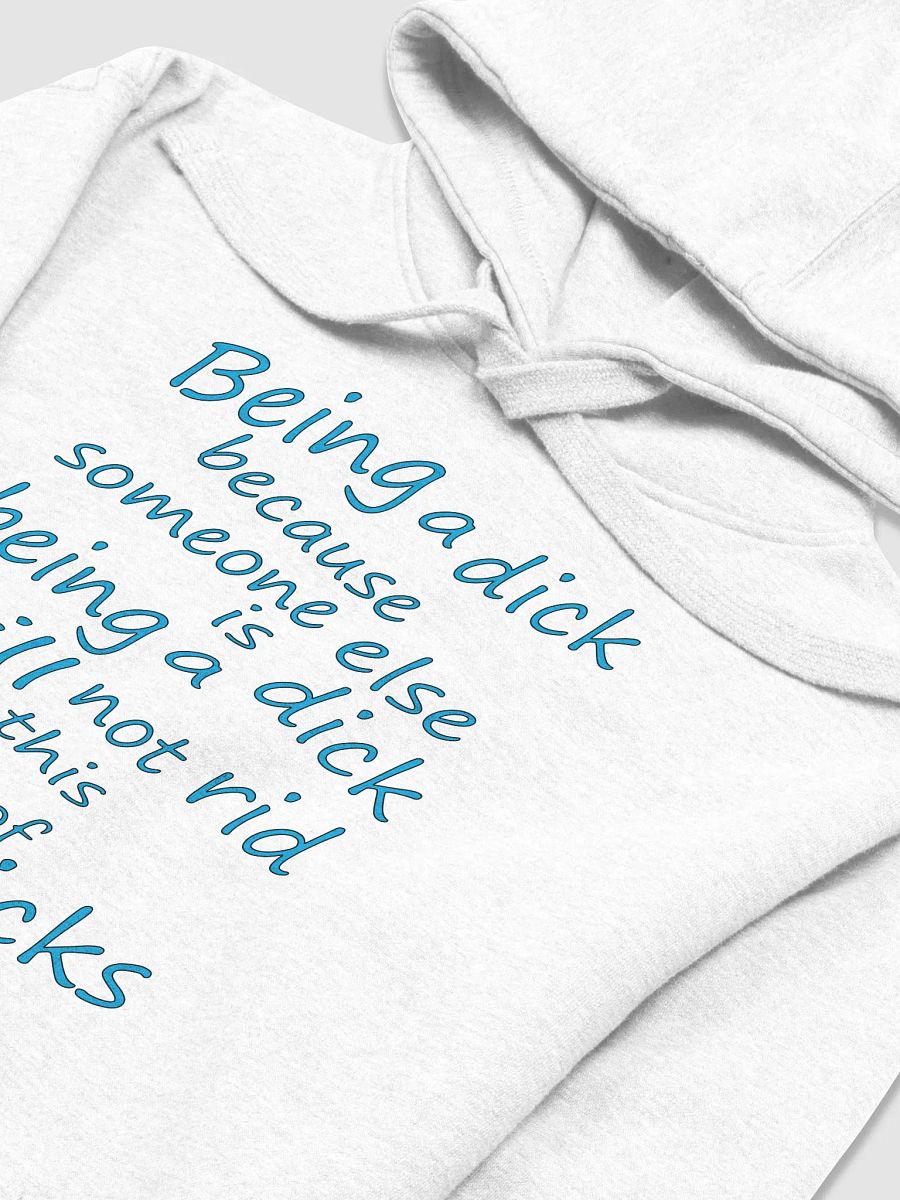 Being a dick
because
someone else
is
being a dick
ill not rid
this
of
cks